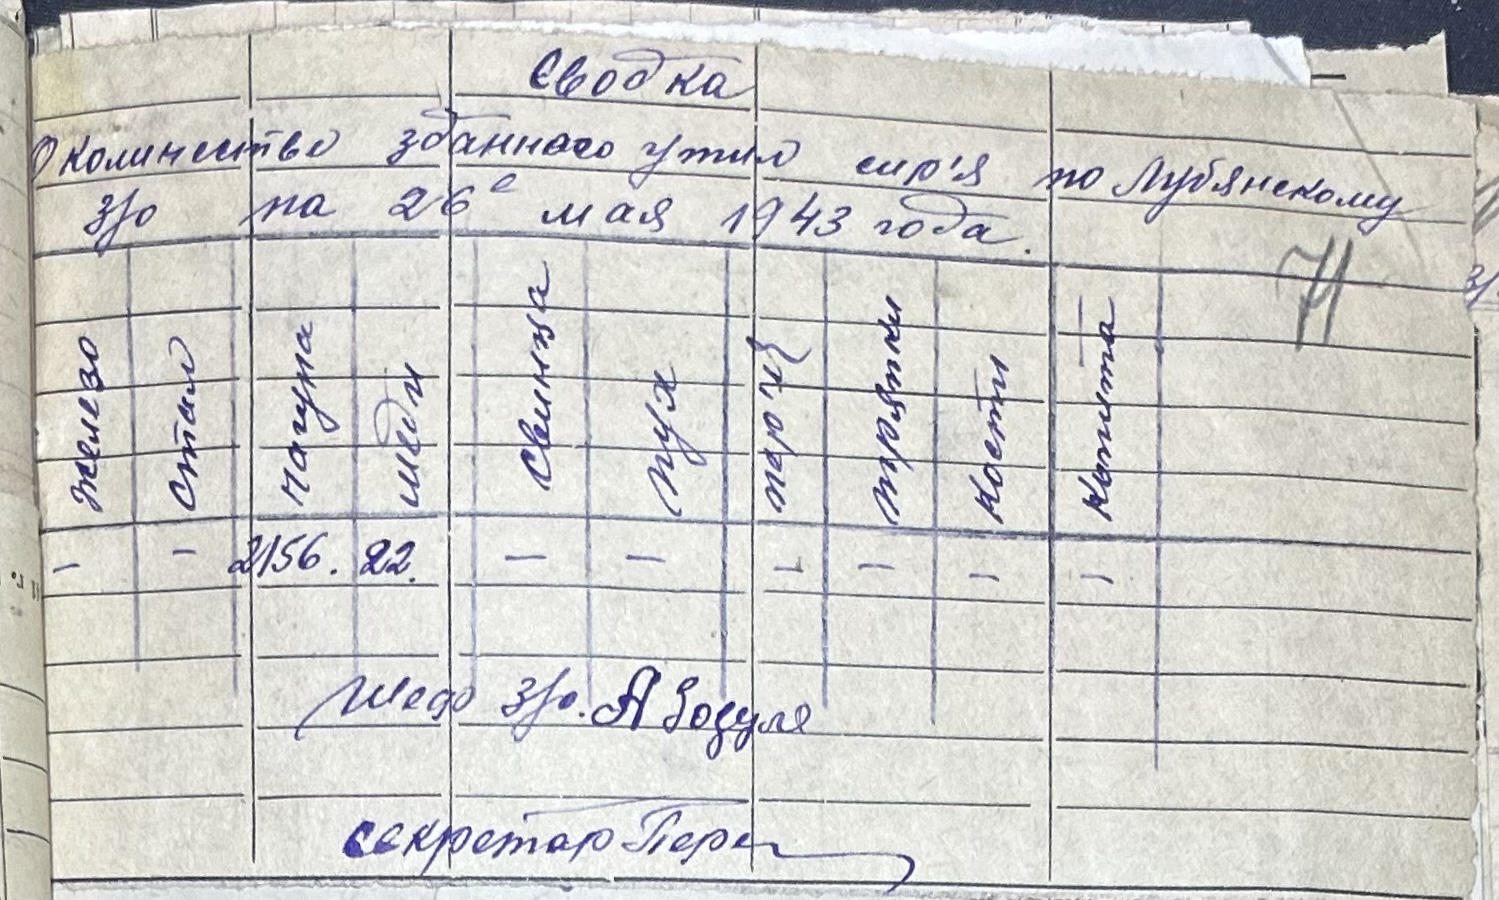 Сводка
О количество зданного утил сир'я по Лубянскому
з/о на 26е мая 1943 года.
71
железо стал чагуна меди свинца пух перо тряпки кости копита
- - 2156. 22. - - - - - -
з/о. А Зозуля
секретар